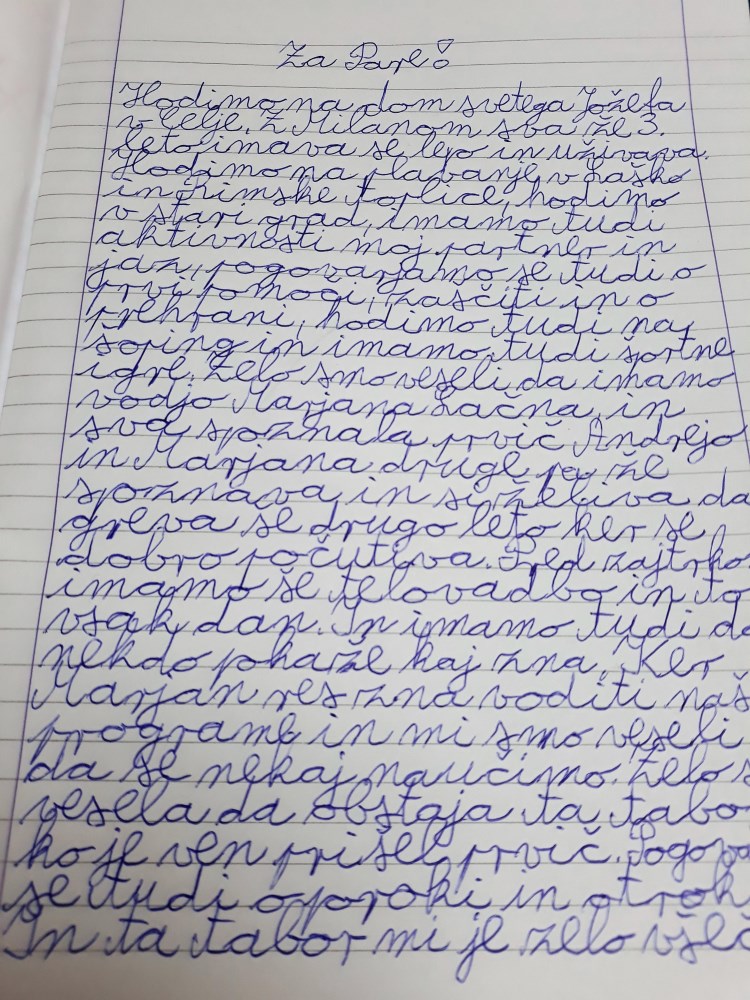 Za Parle!
Hodimo na dom svetega Jožefa
v Celje. Z Milanom sva že 3.
leto imava se lepo in uživava.
Hodimo na plavanje v Laško
in Rimske toplice, hodimo
v stari grad, imamo tudi
aktivnosti moj partner in
jaz, pogovarjamo se tudi o
prvi pomoči, zaščiti in o
prehrani, hodimo tudi na
šoping in imamo tudi športne
igre. Zelo smo veseli da imamo
vodjo Marjana Lačna, in
sva spoznala prvič Andrejo
in Marjana druge pa že
spoznava in si želiva da
greva se drugo leto ker se
dobro počutiva. Pred zajtrko
imamo še telovadbo in to
vsak dan. In imamo tudi da
nekdo pokaže kaj zna. Ker
Marjan res zna voditi naš
programe in mi smo veseli
da se nekaj naučimo. Zelo s
vesela da obstaja ta tabor
ko je ven prišel prvič. Pogova
se tudi o poroki in otrok
In ta tabor mi je zelo všeč